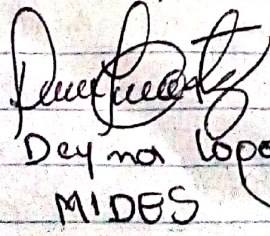 Deyna Lope
MIDES